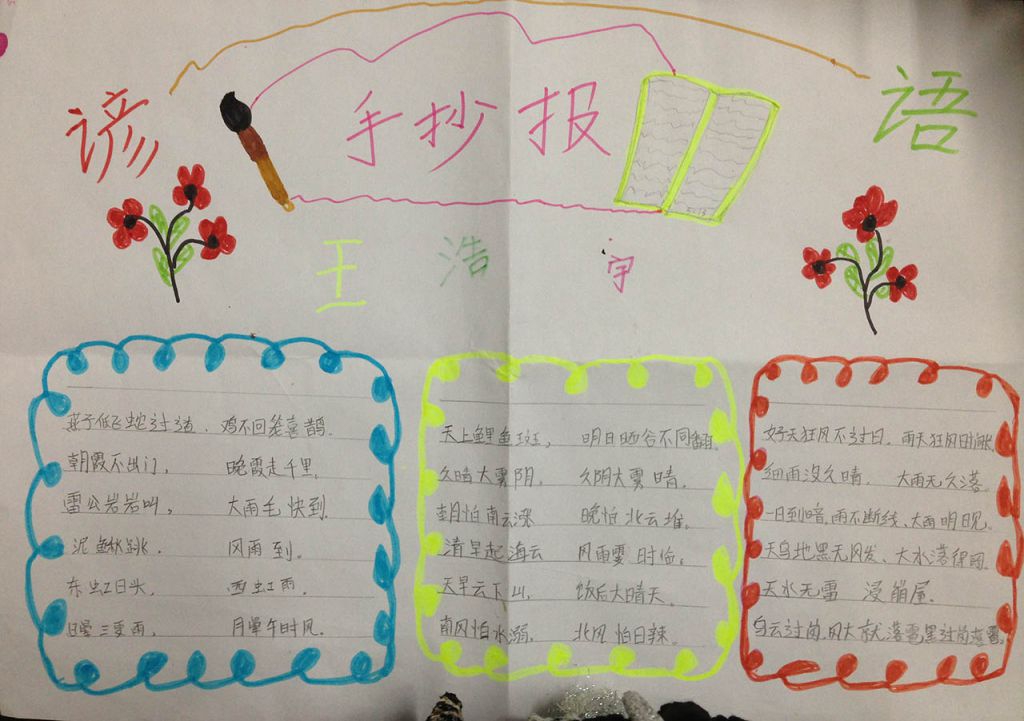 谚 手抄报 语
王 浩 宇
燕子低飞蛇过道. 鸡不回笼喜鹊.
朝霞不出门, 晚霞走千里.
雷公岩岩叫, 大雨毛快到.
泥鳅跳. 风雨到.
东虹日头. 西虹雨.
日晕三更雨, 月晕午时风.
天上鲤鱼斑, 明日晒谷不同翻.
久晴大雾阴, 久阴大雾晴.
朝怕南云涨 晚怕北云堆.
清早起海云 风雨雾时临.
天早云下山, 饭后大晴天.
南风怕水溺. 北风怕日辣.
好天狂风不过日. 雨天狂风时
细雨没久晴. 大雨无久落.
一日到暗,雨不断线、大雨明晚.
天乌地黑无风发、大水落得
天水无雷 浸崩屋.
白云过岗,风大就落雹黑过岗落雹.